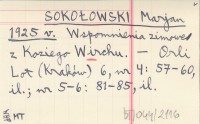 SOKOŁOWSKI Marjan
1925 r. Wspomnienia zimowe
z Koziego Wirchu. — Orli
Lot (Kraków) 6, nr 4: 57-60,
il.; nr 5-6: 81-85, il.
MT
bj 044/2116